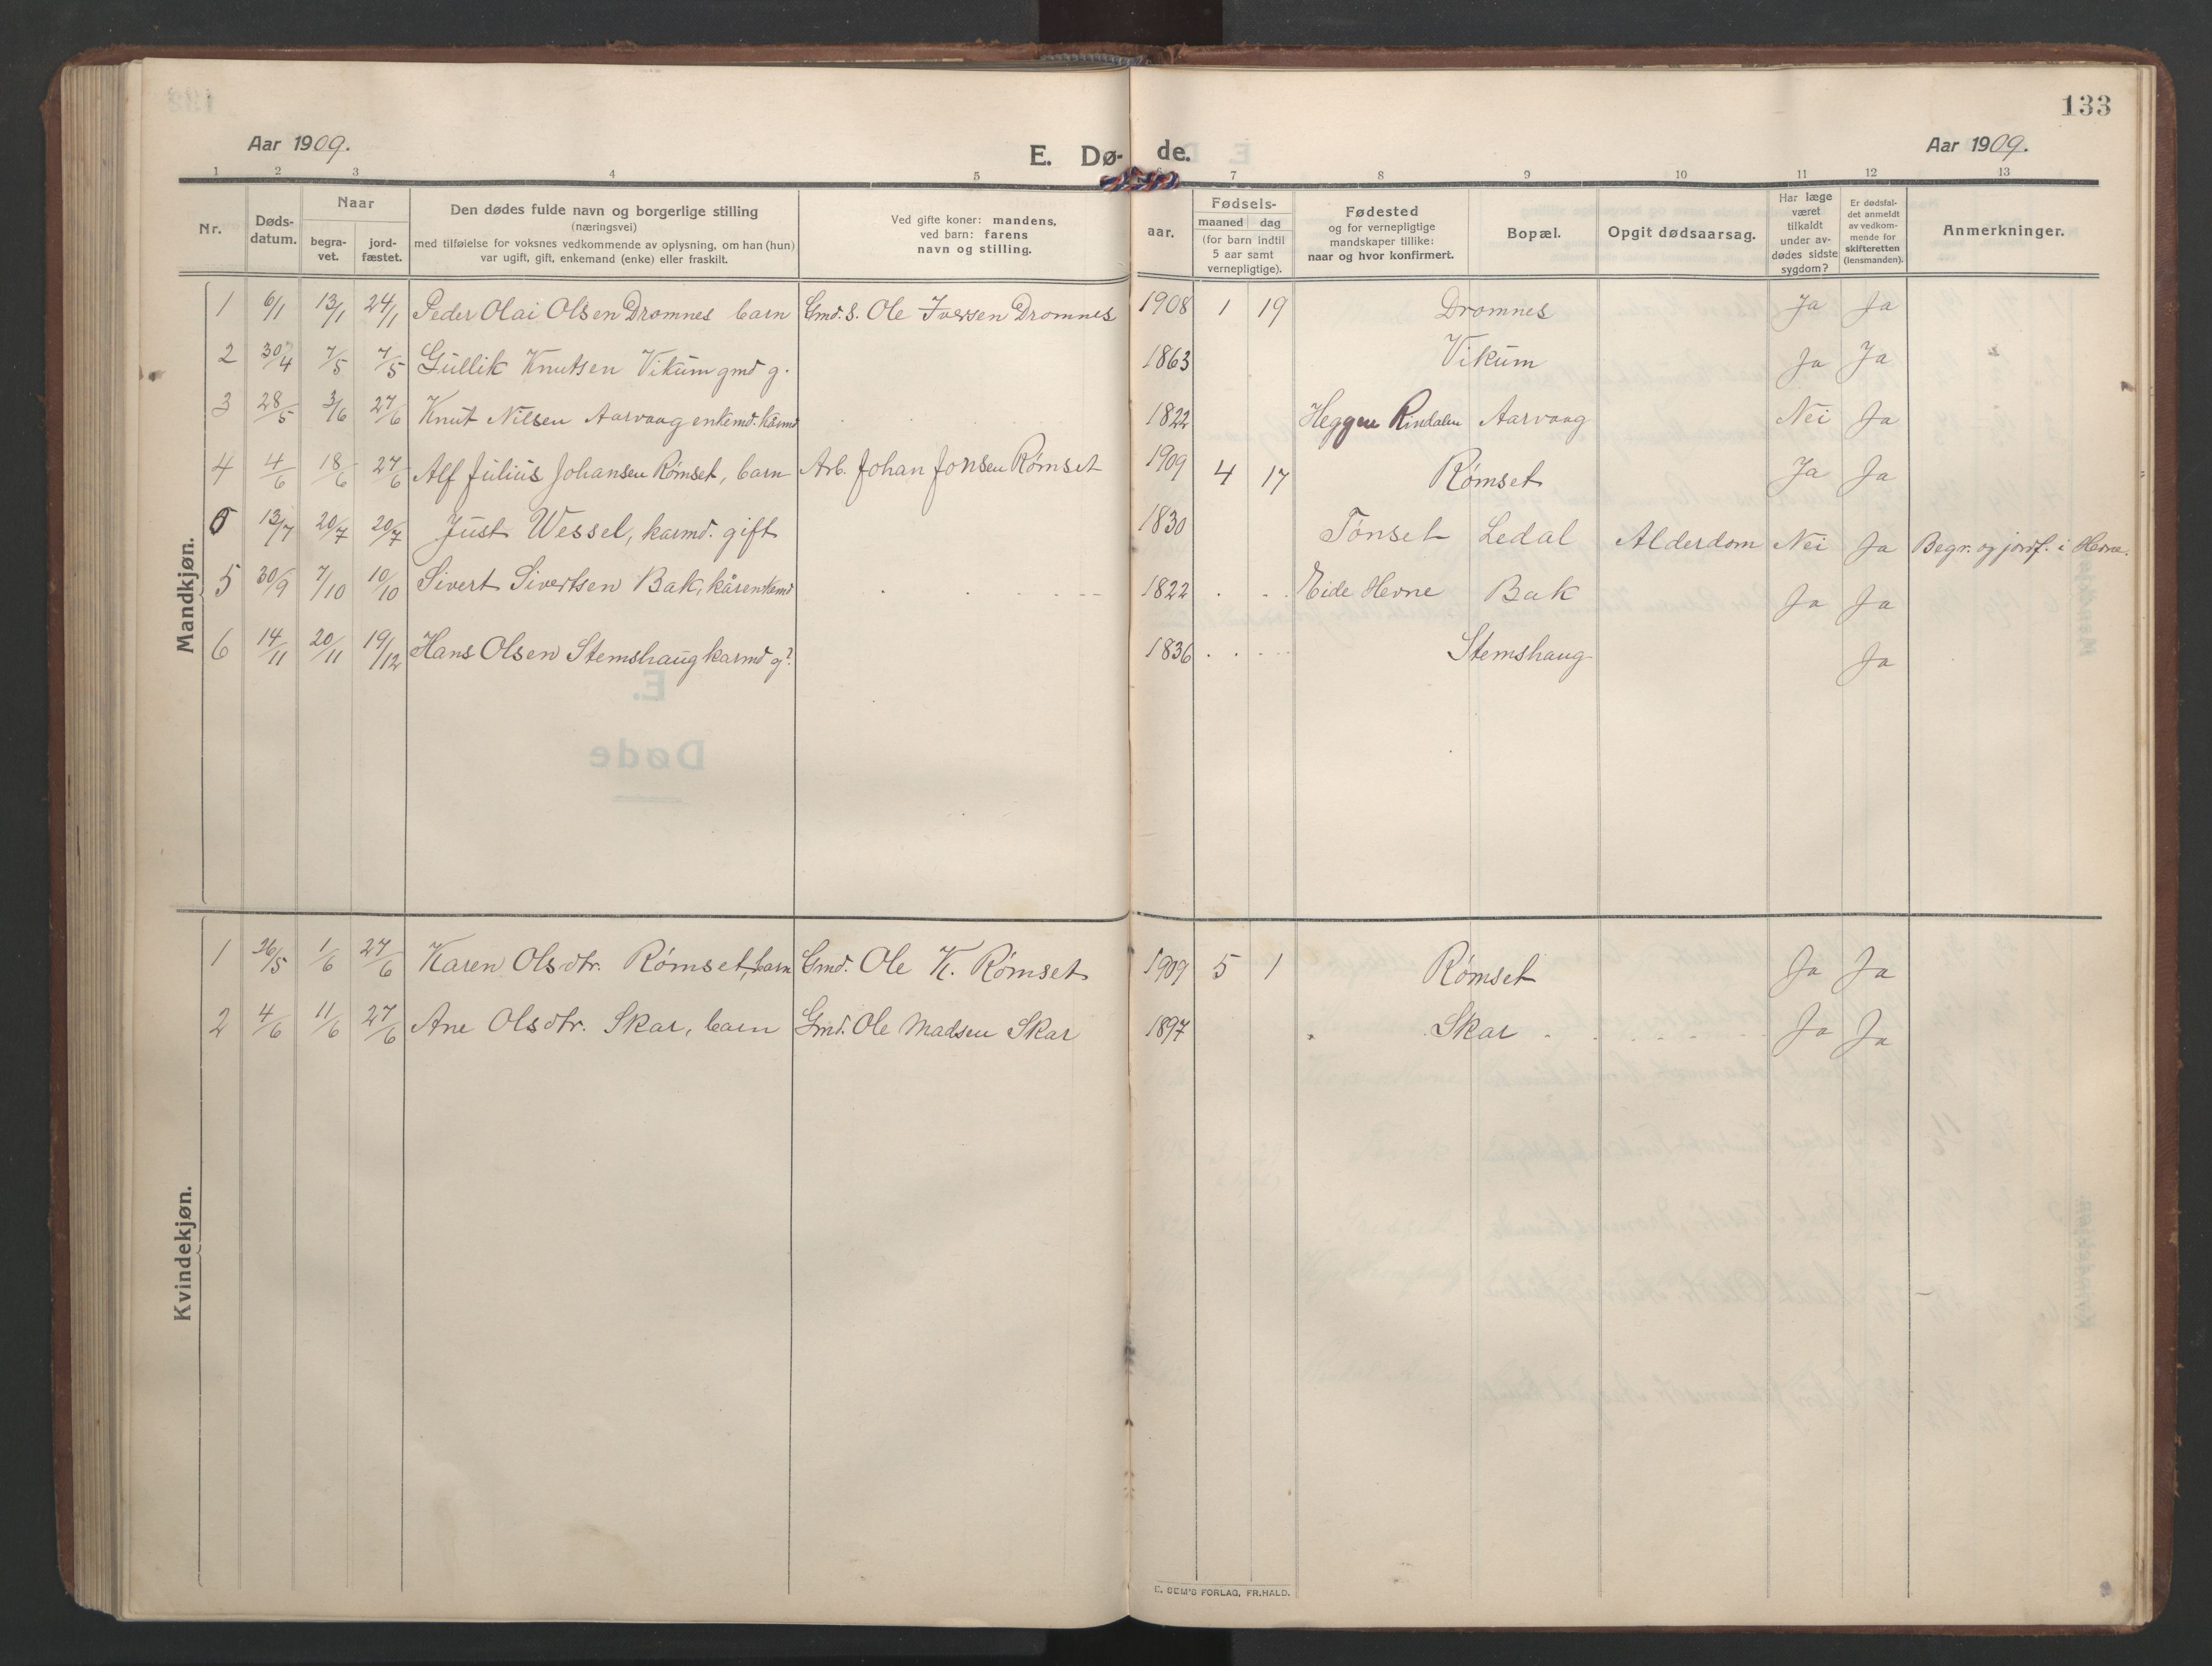 133
Aar 1909.
E. Dø- de.
Aar 1909.
1 2 3 4 5 6 7 8 9 10 11 12 13
Nr.
Døds-
datum.
Naar
begra-
vet.
jord-
fæstet.
Den dødes fulde navn og borgerlige stilling
(næringsvei)
med tilføielse for voksnes vedkommende av oplysning, om han (hun)
var ugift, gift, enkemand (enke) eller fraskilt.
Ved gifte koner: mandens,
ved barn: farens
navn og stilling.
Fødsels-
aar.
maaned dag
(for barn indtil
5 aar samt
vernepligtige).
Fødested
og for vernepligtige
mandskaper tillike:
naar og hvor konfirmert.
Bopæl.
Opgit dødsaarsag.
Har læge
været
tilkaldt
under av-
dødes sidste
sygdom?
Er dødsfal-
det anmeldt
av vedkom-
mende for
skifteretten
(lensmanden).
Anmerkninger.
Mandkjøn.
1 6/1 13/1 24/1 Peder Olai Olsen Dromnes barn Gmd. S. Ole Iversen Dromnes 1908 1 19 Dromnes Ja Ja
2 30/4 7/5 7/5 Gullik Knutsen Vikum gmd g. 1863 Vikum Ja Ja
3 28/5 3/6 27/6 Knut Nilsen Aarvaag enkemd. Karmd 1822 Heggem Rindalen Aarvaag Nei Ja
4 4/6 18/6 27/6 Alf Julius Johansen Rømset, barn Arb. Johan Jonsen Rømset 1909 4 17 Rømset Ja Ja
0 13/7 20/7 20/7 Just Wessel, karmd. gift 1830 Tønset Ledal Alderdom Nei Ja Begr. og jordf. i Hevne.
5 30/9 7/10 10/10 Sivert Sivertsen Bak, kårenkemd 1822 Eide Hevne Bak Ja Ja
6 14/11 20/11 19/12 Hans Olsen Stemshaug karmd g? 1836 Stemshaug Ja
Kvindekjøn.
1 26/5 1/6 27/6 Karen Olsdtr. Rømset, barn Gmd. Ole K. Rømset 1909 5 1 Rømset Ja Ja
2 4/6 11/6 27/6 Ane Olsdtr. Skar, barn Gmd. Ole Madsen Skar 1897 Skar Ja Ja
E. SEM'S FORLAG, FR.HALD.